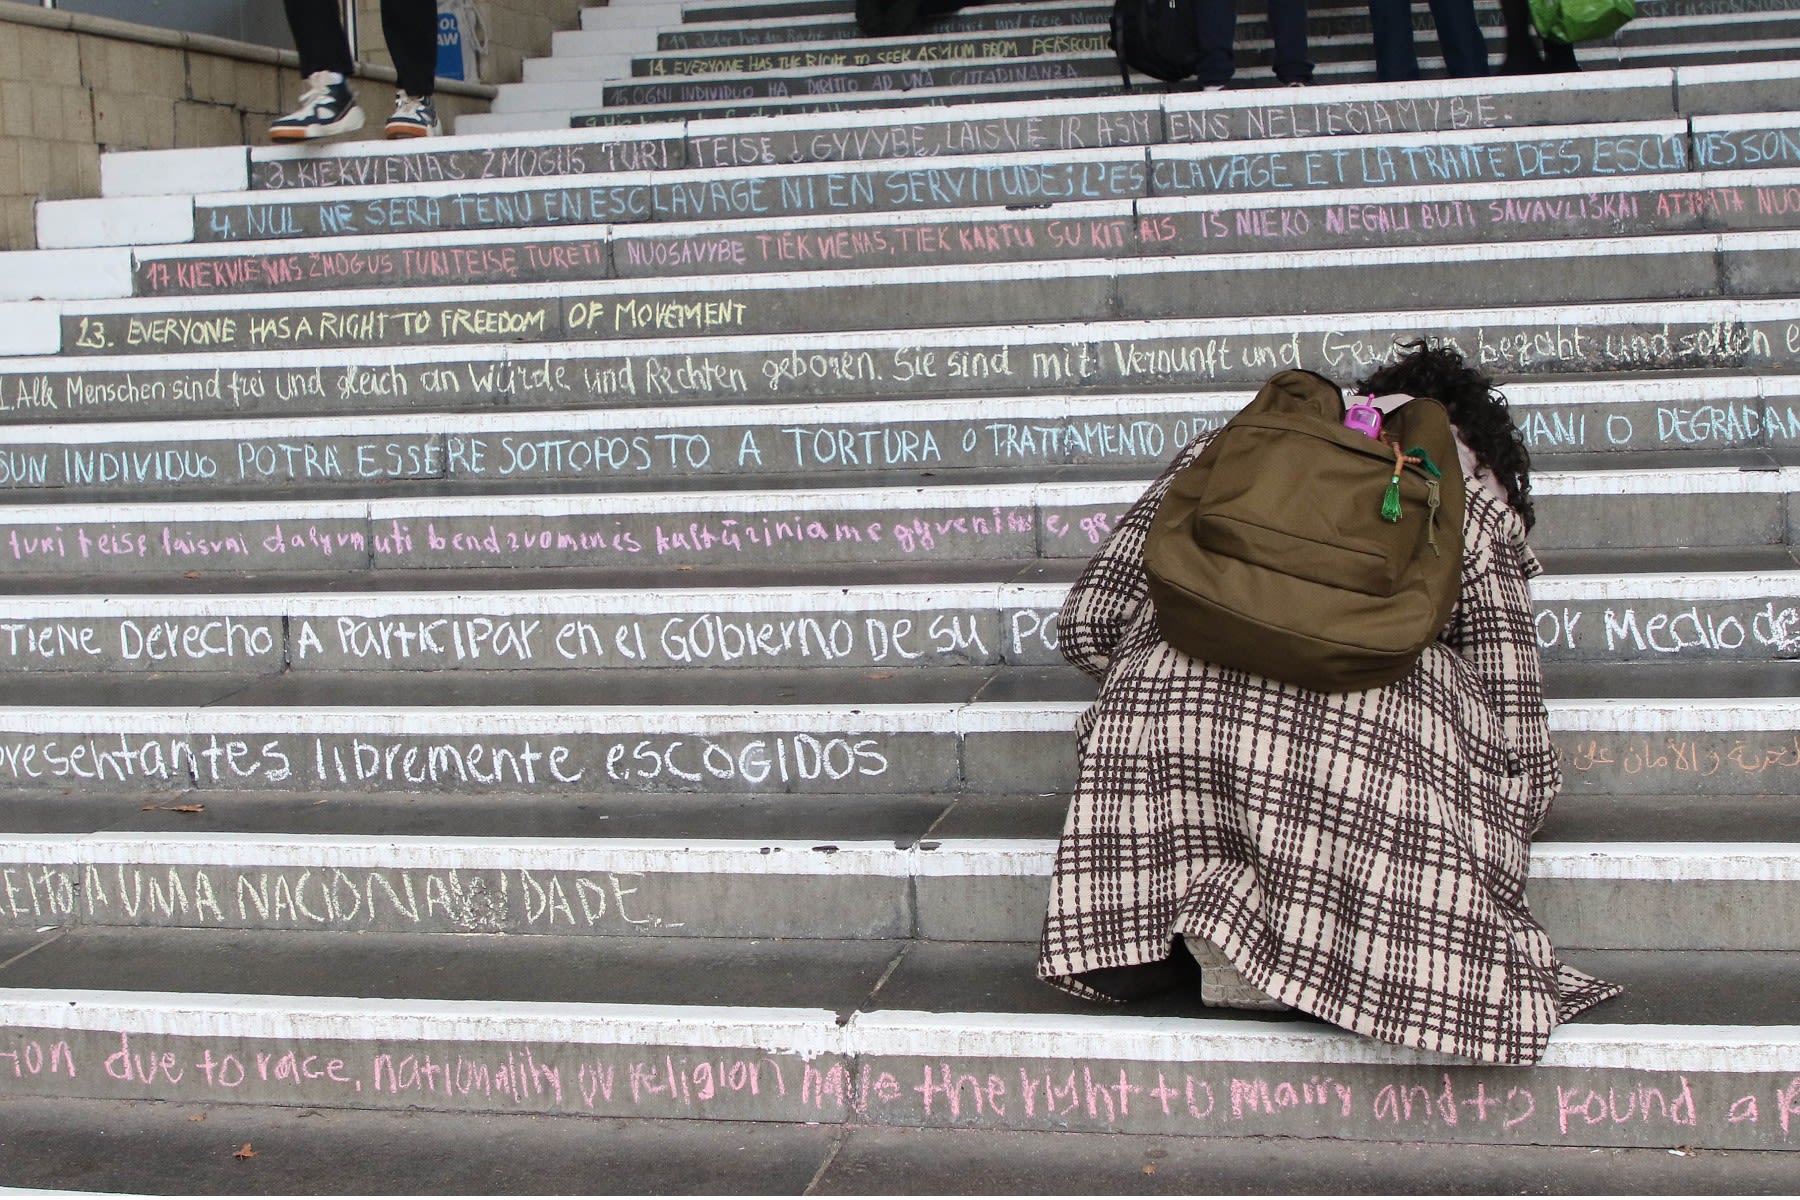 14. EVERYONE HAS THE RIGHT TO SEEK ASYLUM FROM PERSECUTIO
15 OGNI INDIVIDUO HA DIRITTO AD UNA CITTADINANZA
3. KIEKVIENAS ŽMOGUS TURI TEISĘ Į GYVYBĘ, LAISVĘ IR ASM ENS NELIEČIAMYBĘ.
4. NUL NE SERA TENU EN ESCLAVAGE NI EN SERVITUDE; L'ESCLAVAGE ET LA TRAITE DES ESCLAVES SON
17 KIEKVIENAS ŽMOGUS TURI TEISĘ TURĖTI NUOSAVYBĘ TIEK VIENAS, TIEK KARTU SU KITAIS IŠ NIEKO NEGALI BUTI SAVAVLIŠKAI ATIMTA NUO
13. EVERYONE HAS A RIGHT TO FREEDOM OF MOVEMENT
1. Alle Menschen sind frei und gleich an Würde und Rechten geboren. Sie sind mit Vernunft und Gewissen begabt und sollen e
SUN INDIVIDUO POTRÀ ESSERE SOTTOPOSTO A TORTURA O TRATTAMENTO O MANI O DEGRADAN
turi teisę laisvai dalyvauti bendruomenės kultūriniame gyvenime,
TIENE DERECHO A PARTICIPAR en el GOBIERNO DE SU PO OR MEDIO de
presentantes libremente escogidos
الحرية والأمان على
REITO A UMA NACIONALIDADE
tion due to race, nationality or religion have the right to marry and to found a f